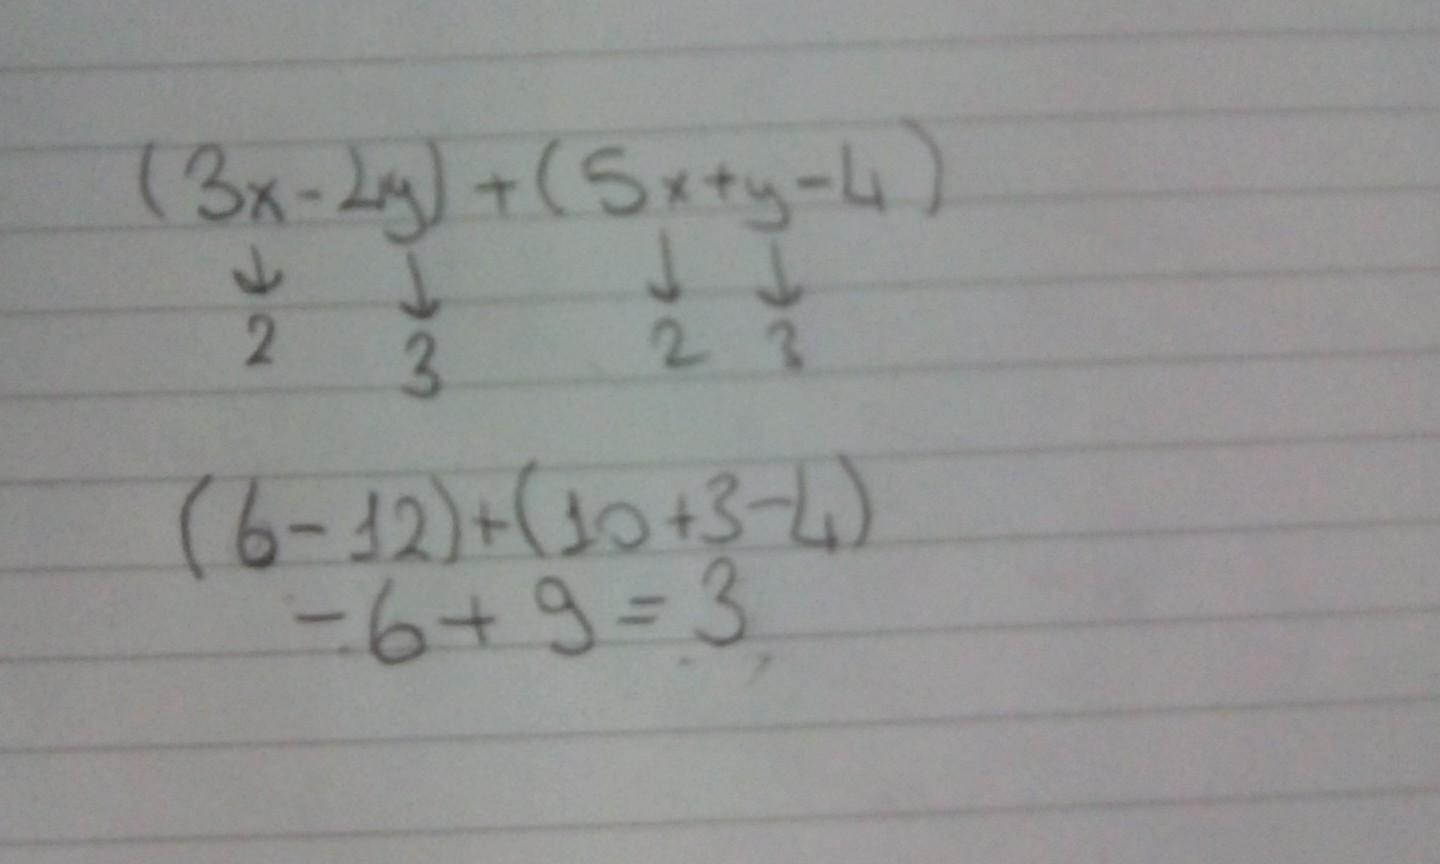 (3x-2y)+(5x+y-4)
↓ ↓ ↓ ↓
2 3 2 3
(6-12)+(10+3-4)
-6+9=3